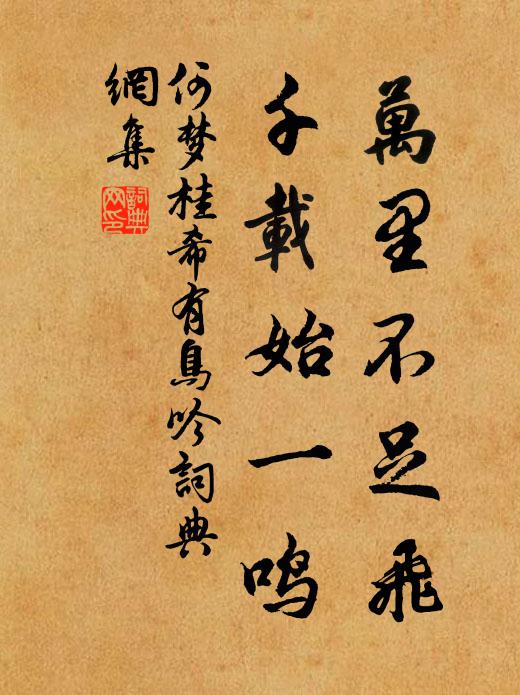 萬里不足飛
千載始一鳴
何梦桂希有鳥吟詞典
網集
詞典
网印